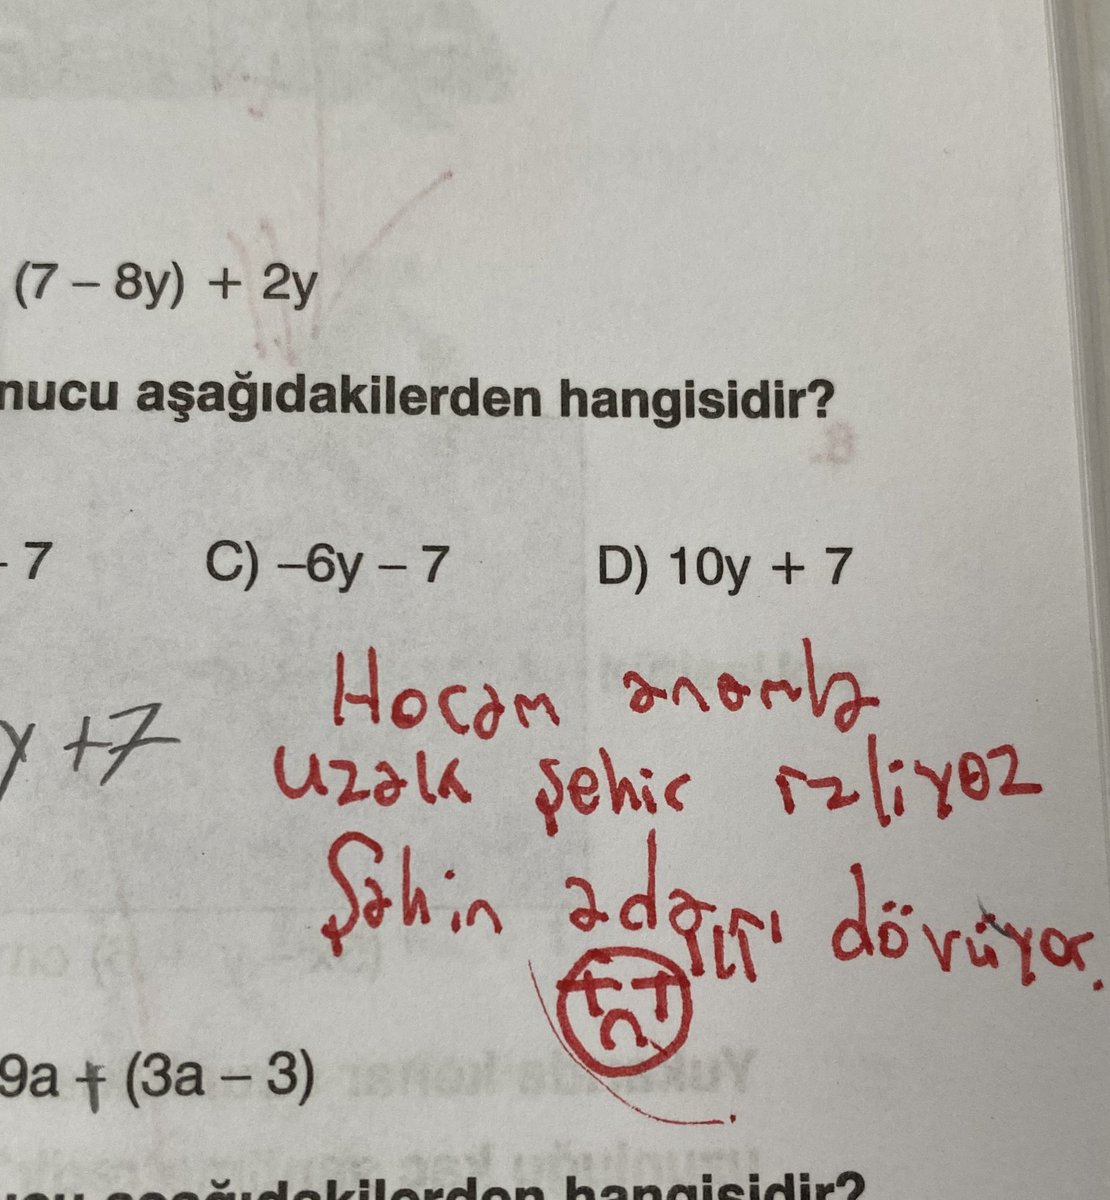 (7 – 8y) + 2y
nucu aşağıdakilerden hangisidir?
- 7 C) –6y – 7 D) 10y + 7
y +7
Hocam anamla
uzak şehir izliyoz
Şahin adamı dövüyor.
9a + (3a – 3)
hangisidir?